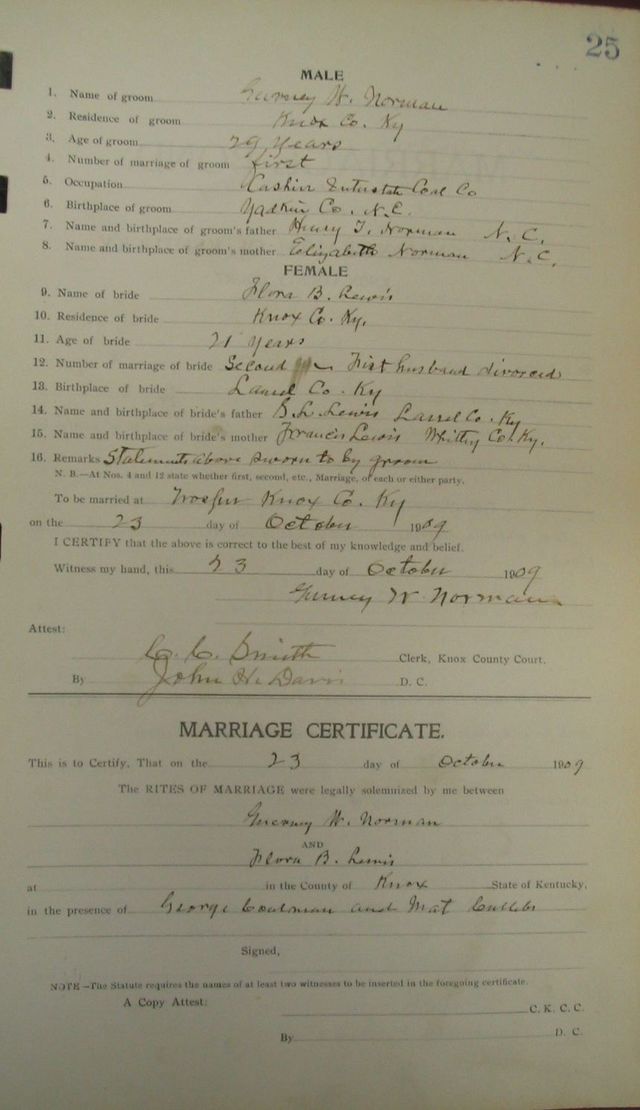 25
MALE
1. Name of groom Gurney W. Norman
2. Residence of groom Knox Co. Ky
3. Age of groom 29 Years
4. Number of marriage of groom first
5. Occupation Cashier Interstate Coal Co
6. Birthplace of groom Yadkin Co. N.C.
7. Name and birthplace of groom's father Henry T. Norman N.C.
8. Name and birthplace of groom's mother Elizabeth Norman N.C.
FEMALE
9. Name of bride Flora B. Lewis
10. Residence of bride Knox Co. Ky.
11. Age of bride 21 Years
12. Number of marriage of bride Second First husband divorced
13. Birthplace of bride Laurel Co. Ky
14. Name and birthplace of bride's father Lewis Laurel Co. Ky
15. Name and birthplace of bride's mother Francis Lewis Whitley Co. Ky.
16. Remarks Statements above sworn to by groom
N. B.—At Nos. 4 and 12 state whether first, second, etc., Marriage, of each or either party.
To be married at Knox Co. Ky
on the 23 day of October 1909
I CERTIFY that the above is correct to the best of my knowledge and belief.
Witness my hand, this 23 day of October 1909
Gurney W Norman
Attest:
C. C. Smith Clerk, Knox County Court.
By John H. Davis D. C.
MARRIAGE CERTIFICATE.
This is to Certify, That on the 23 day of October 1909
The RITES OF MARRIAGE were legally solemnized by me between
Gurney W. Norman
AND
Flora B. Lewis
at in the County of Knox State of Kentucky,
in the presence of George and Mat
Signed,
NOTE—The Statute requires the names of at least two witnesses to be inserted in the foregoing certificate.
A Copy Attest:
C. K. C. C.
By D. C.